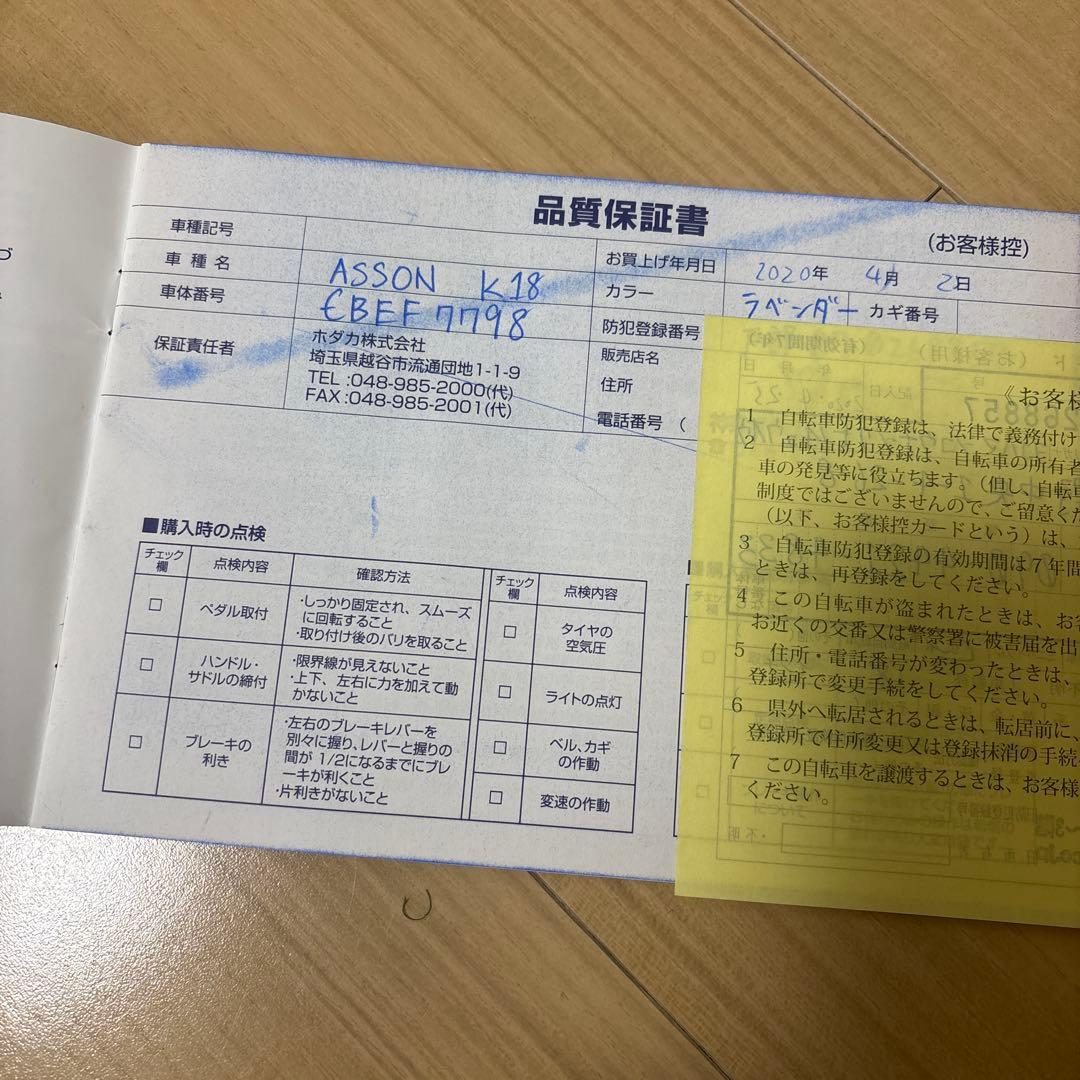 品質保証書
(お客様控)
車種記号
お買上げ年月日 2020年 4月 2日
車種名 ASSON K18
カラー ラベンダー カギ番号
車体番号 CBEF7798
防犯登録番号
保証責任者
ホダカ株式会社
埼玉県越谷市流通団地1-1-9
TEL:048-985-2000(代)
FAX:048-985-2001(代)
販売店名
住所
電話番号 (
■購入時の点検
チェック欄 点検内容 確認方法
□ ペダル取付
・しっかり固定され、スムーズ
に回転すること
・取り付け後のバリを取ること
□ ハンドル・
サドルの締付
・限界線が見えないこと
・上下、左右に力を加えて動
かないこと
□ ブレーキの
利き
・左右のブレーキレバーを
別々に握り、レバーと握りの
間が1/2になるまでにブレ
ーキが利くこと
・片利きがないこと
チェック欄 点検内容
□ タイヤの
空気圧
□ ライトの点灯
□ ベル、カギ
の作動
□ 変速の作動
《お客様
1 自転車防犯登録は、法律で義務付け
2 自転車防犯登録は、自転車の所有者
車の発見等に役立ちます。(但し、自転車
制度ではございませんので、ご留意くだ
(以下、お客様控カードという)は、
3 自転車防犯登録の有効期間は7年間
ときは、再登録をしてください。
4 この自転車が盗まれたときは、お客
お近くの交番又は警察署に被害届を出
5 住所・電話番号が変わったときは、
登録所で変更手続をしてください。
6 県外へ転居されるときは、転居前に、
登録所で住所変更又は登録抹消の手続
7 この自転車を譲渡するときは、お客様
ください。